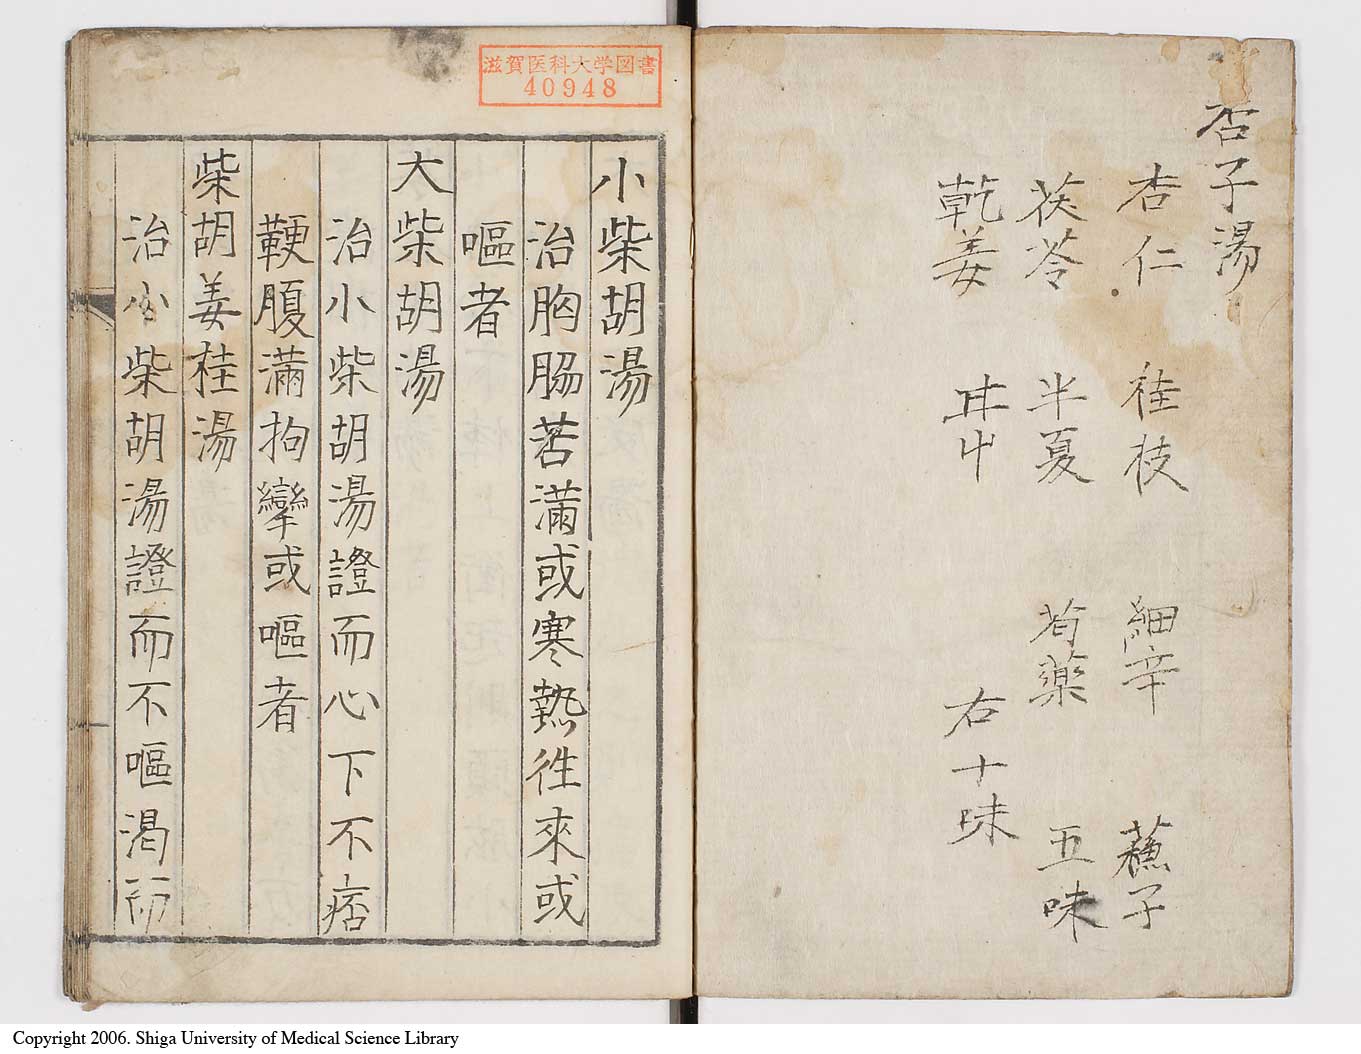 杏子湯
杏仁 桂枝 細辛 蘓子
茯苓 半夏 芍薬 五味
乾姜 右十味
滋賀医科大学図書
40948
小柴胡湯
治胸脇苦満或寒熱徃來或
嘔者
大柴胡湯
治小柴胡湯證而心下不痞
鞕腹滿拘攣或嘔者
柴胡姜桂湯
治小柴胡湯證而不嘔渇而
Copyright 2006. Shiga University of Medical Science Library